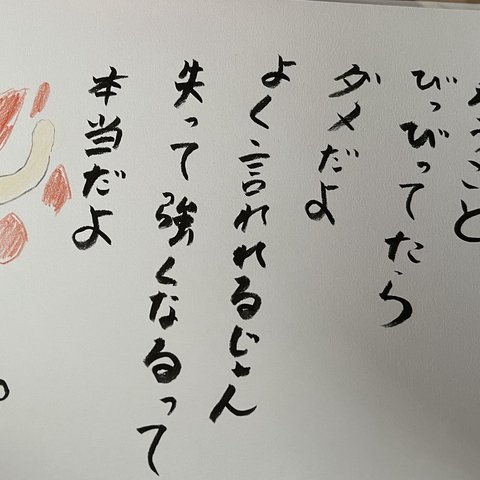 うこと
びっびってたら
ダメだよ
よく言われるじゃん
失って強くなるって
本当だよ